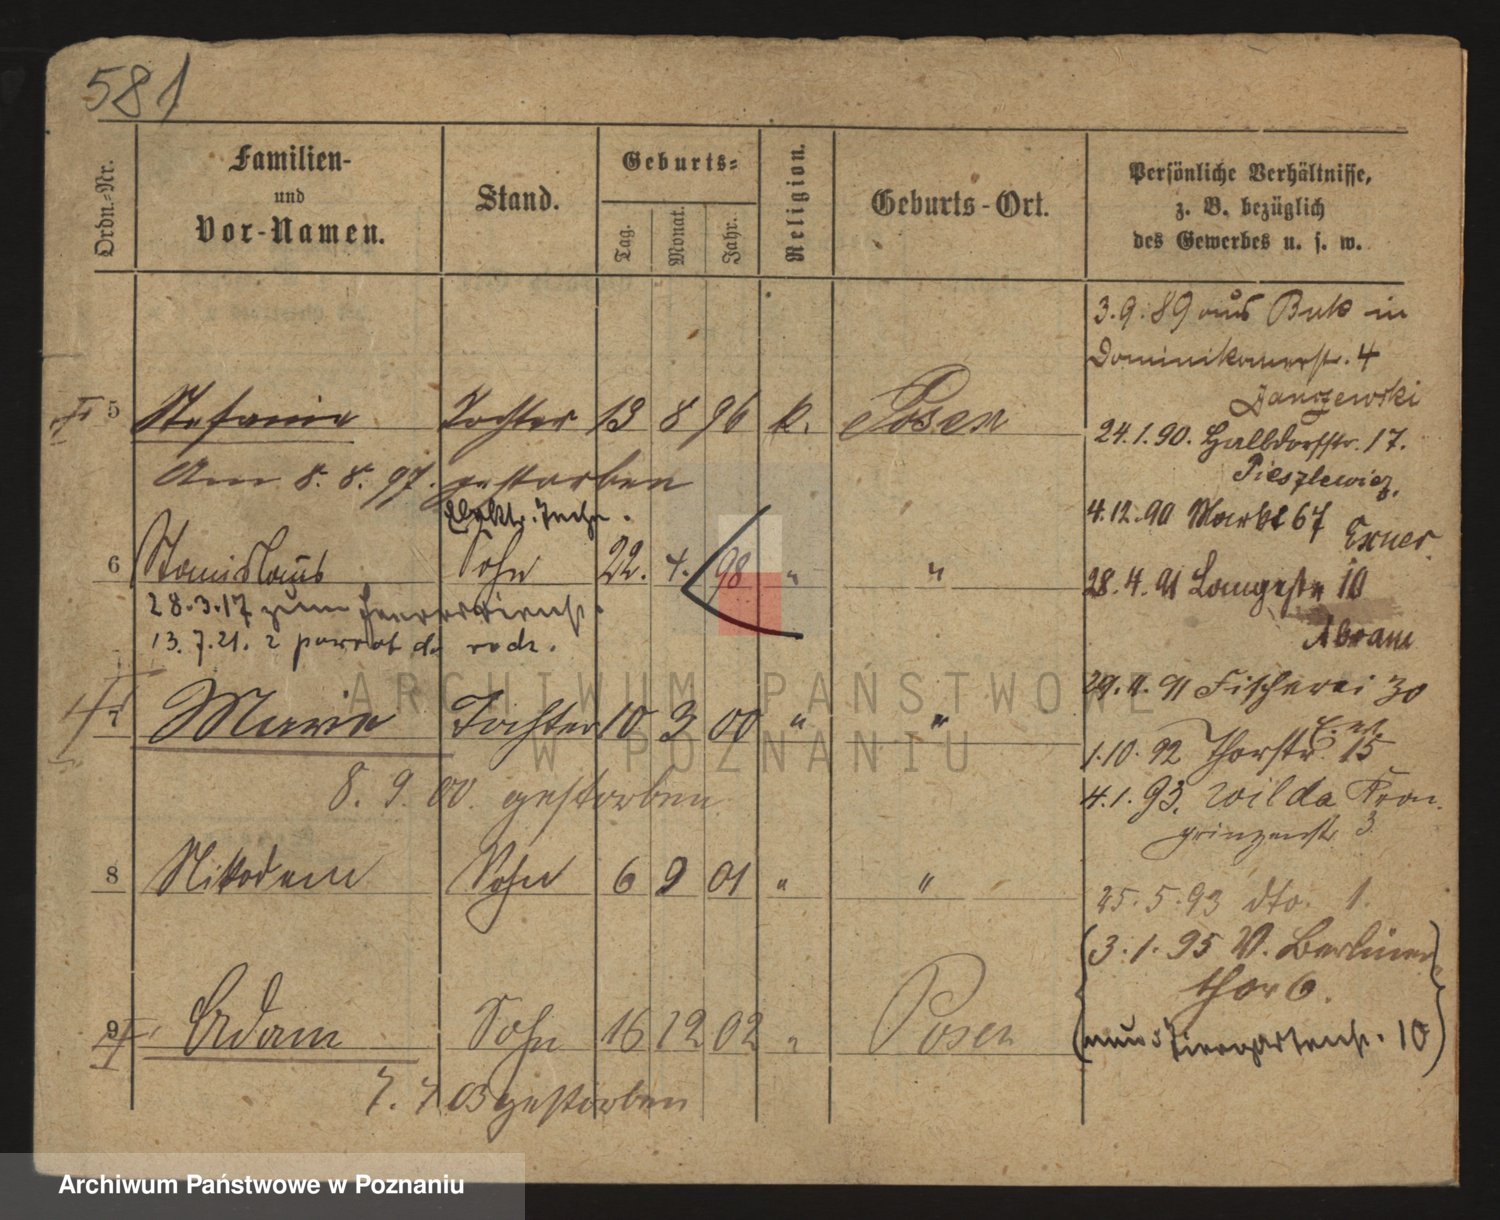 581
Ordn.-Nr.
Familien-
und
Vor-Namen.
Stand.
Geburts-
Tag.
Monat.
Jahr.
Religion.
Geburts-Ort.
Persönliche Verhältnisse,
z. B. bezüglich
des Gewerbes u. s. w.
3.9.89 aus Buk in
Dominikanerstr. 4
Janczewski
5 Stefanie Tochter 13 8 96 k. Posen
24.1.90. Halbdorfstr. 17.
Am 8. 8. 97. gestorben
4.12.90 Markt 67
Exner.
Elektr. Techn.
6 Stanislaus Sohn 22. 4. 98 " "
28.4.91 Langestr 10
28.3.17 zum
13.7.21. z powrot do
Abram
7 Marie Tochter 10 3 00 " "
Fischerei 30
1.10.92 Thorstr. 15
8. 9. 00. gestorben
4.1.93. Wilda Kron
prinzenstr. 3
8 Nikodem Sohn 6 9 01 " "
25.5.93 dto. 1.
3.1.95 W. Berliner
thor 6.
9 Adam Sohn 16 12 02 " Posen
Tiergartenstr. 10
7. 7 03 gestorben
ARCHIWUM PAŃSTWOWE
W POZNANIU
Archiwum Państwowe w Poznaniu